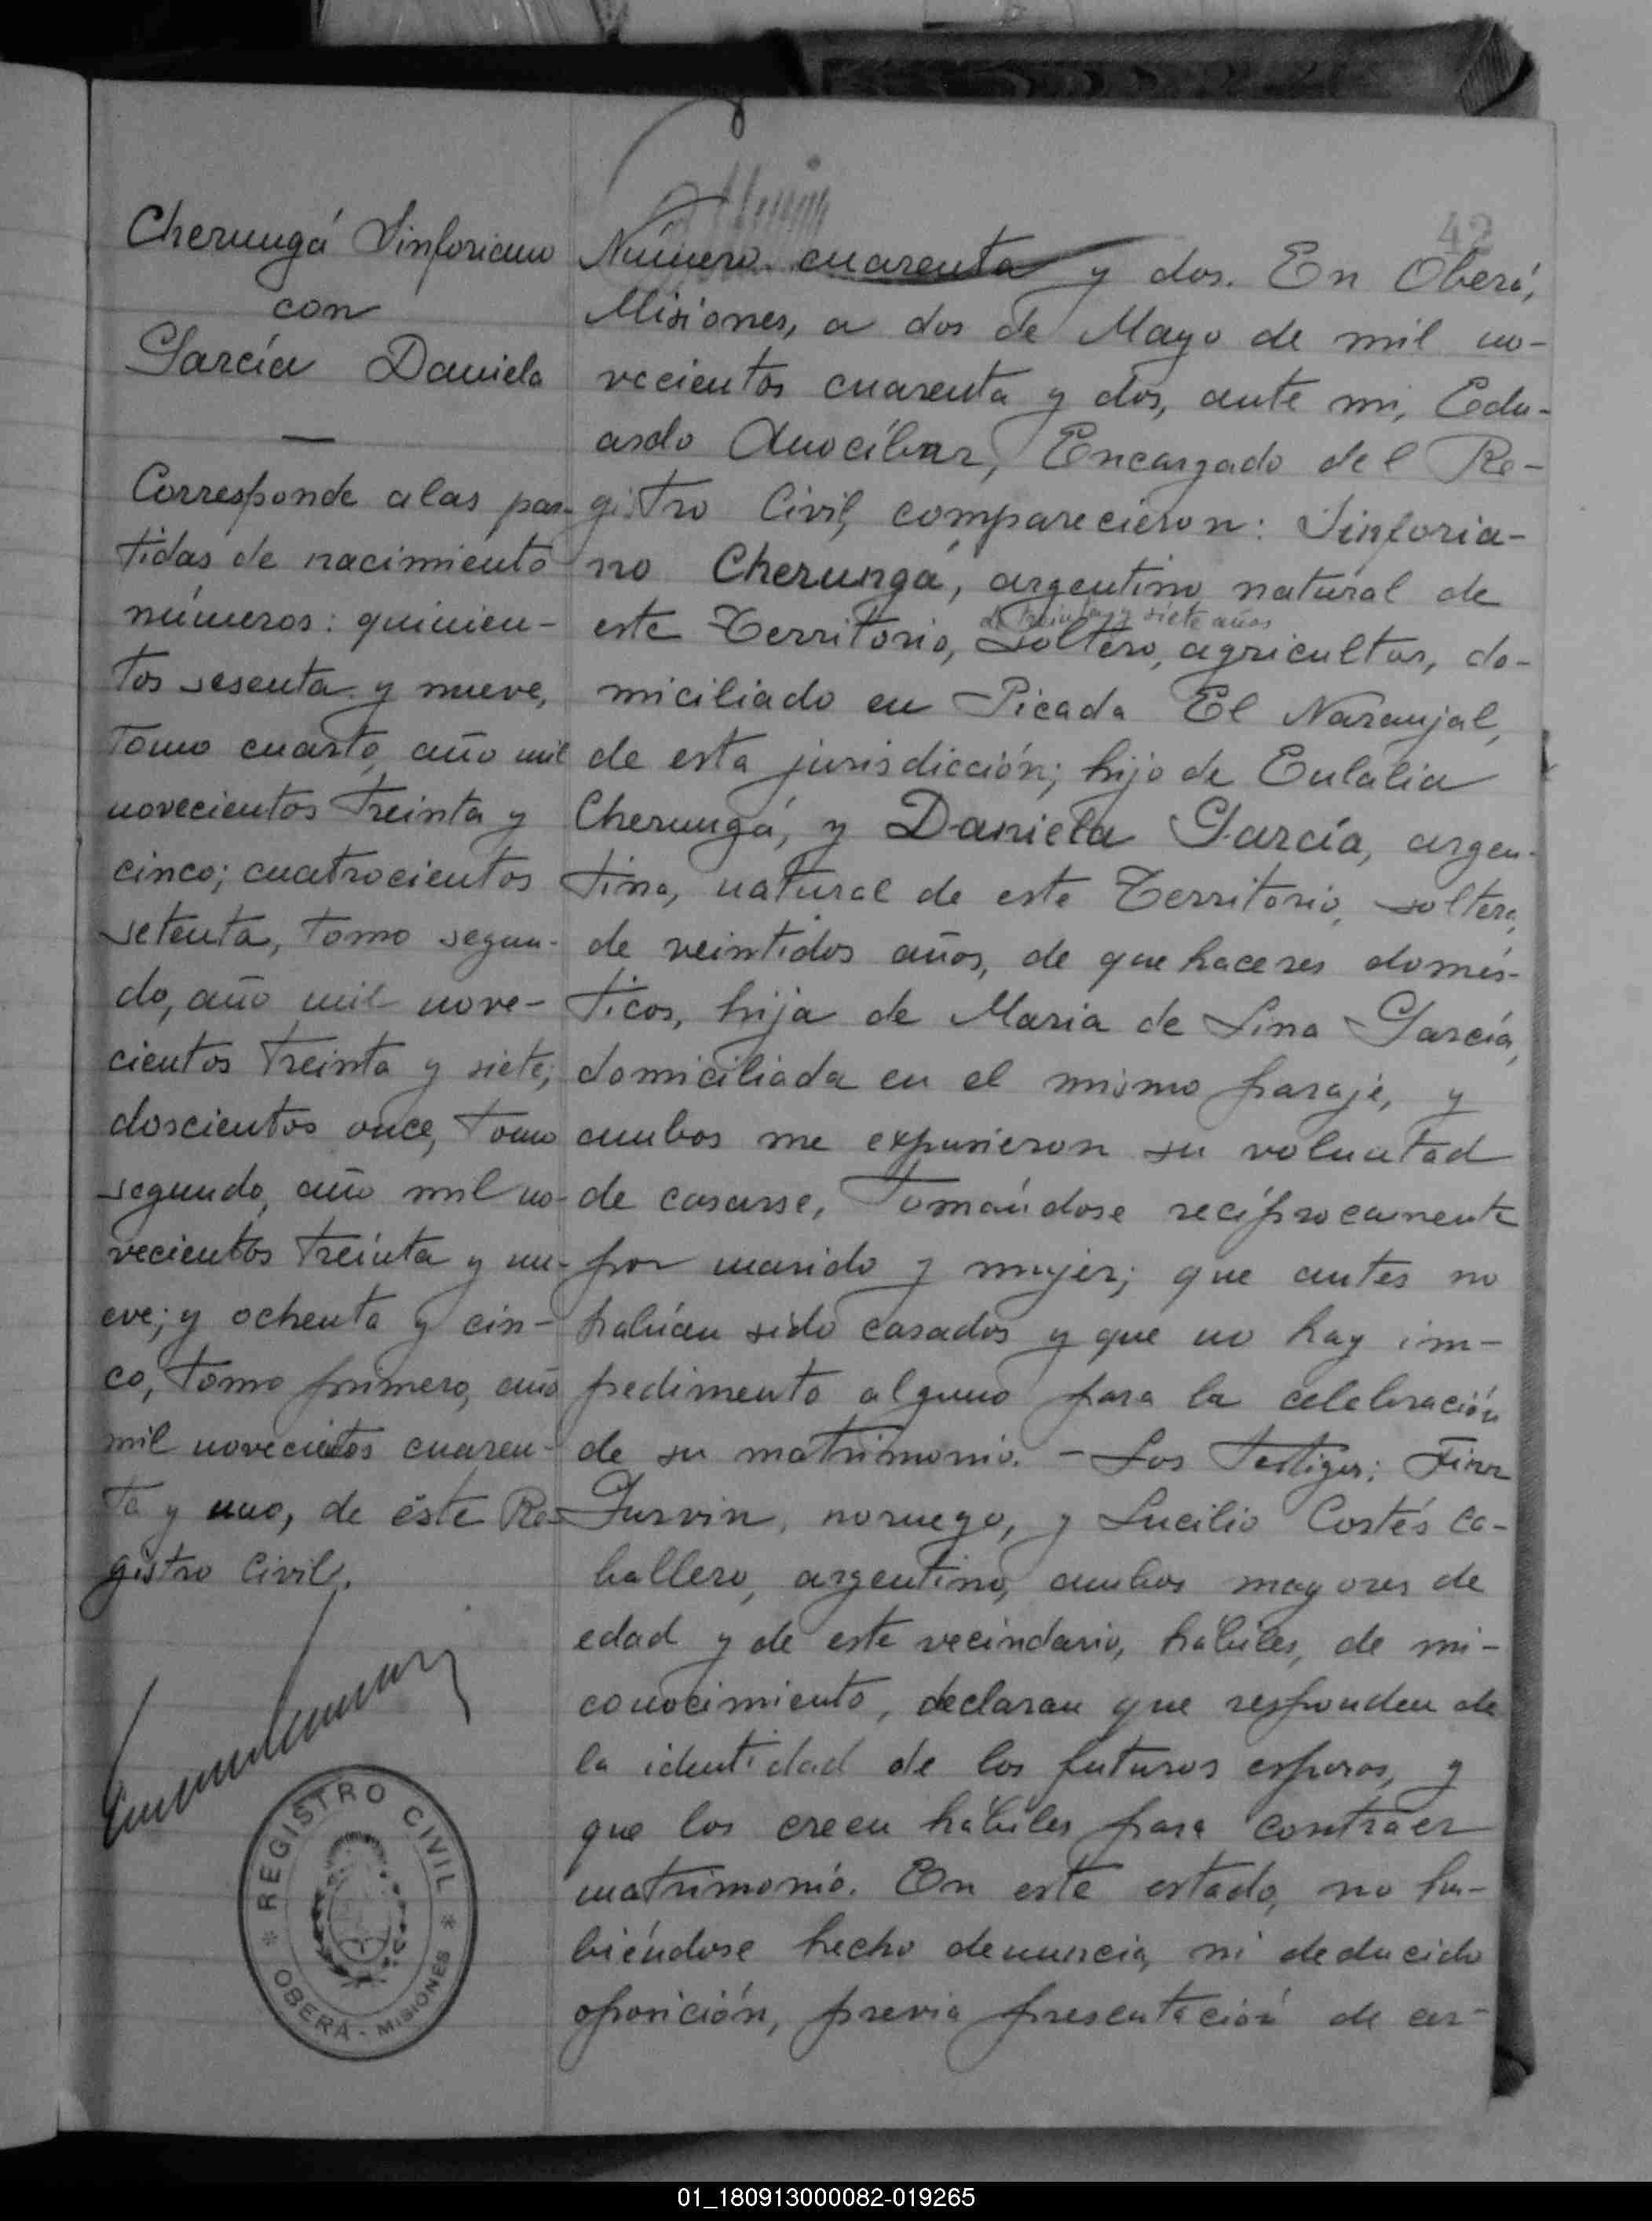 42
Cherungá Sinforiano
con
García Daniela
Corresponde a las par-
tidas de nacimiento
números: quinien-
tos sesenta y nueve,
tomo cuarto, año mil
novecientos treinta y
cinco; cuatrocientos
setenta, tomo segun-
do, año mil nove-
cientos treinta y siete;
doscientos once, tomo
segundo, año mil no-
vecientos treinta y nu-
eve; y ochenta y cin-
co, tomo primero, año
mil novecientos cuaren-
ta y uno, de éste Re-
gistro Civil.
REGISTRO CIVIL
OBERÁ - MISIONES
Número cuarenta y dos. En Oberá,
Misiones, a dos de Mayo de mil no-
vecientos cuarenta y dos, ante mi, Edu-
ardo Anocíbar, Encargado del Re-
gistro Civil, comparecieron: Sinforia-
no Cherungá, argentino natural de
de treinta y siete años
este Territorio, soltero, agricultor, do-
miciliado en Picada El Naranjal,
de esta jurisdicción; hijo de Eulalia
Cherungá, y Daniela García, argen-
tina, natural de este Territorio, soltera,
de veintidos años, de que haceres domés-
ticos, hija de Maria de Lina García,
domiciliada en el mismo paraje, y
ambos me expusieron su voluntad
de casarse, tomándose recíprocamente
por marido y mujer; que antes no
habían sido casados y que no hay im-
pedimento alguno para la celebración
de su matrimonio. - Los testigos:
noruego, y Lucilio Cortés Ca-
ballero, argentino, ambos mayores de
edad y de este vecindario, hábiles, de mi-
conocimiento, declaran que responden de
la identidad de los futuros esposos, y
que los creen hábiles para contraer
matrimonio. En este estado, no ha-
biéndose hecho denuncia, ni deducido
oposición, previa presentación de cer-
01_180913000082-019265